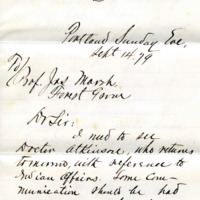 Portland Sunday Eve,
Sept 14-79
To
Prof. Jas Marsh,
Forest Grove
Dr Sir:
I need to see
Doctor Atkinson, who returns
to-morrow, with reference to
Indian Affairs. Some com-
munication should be had